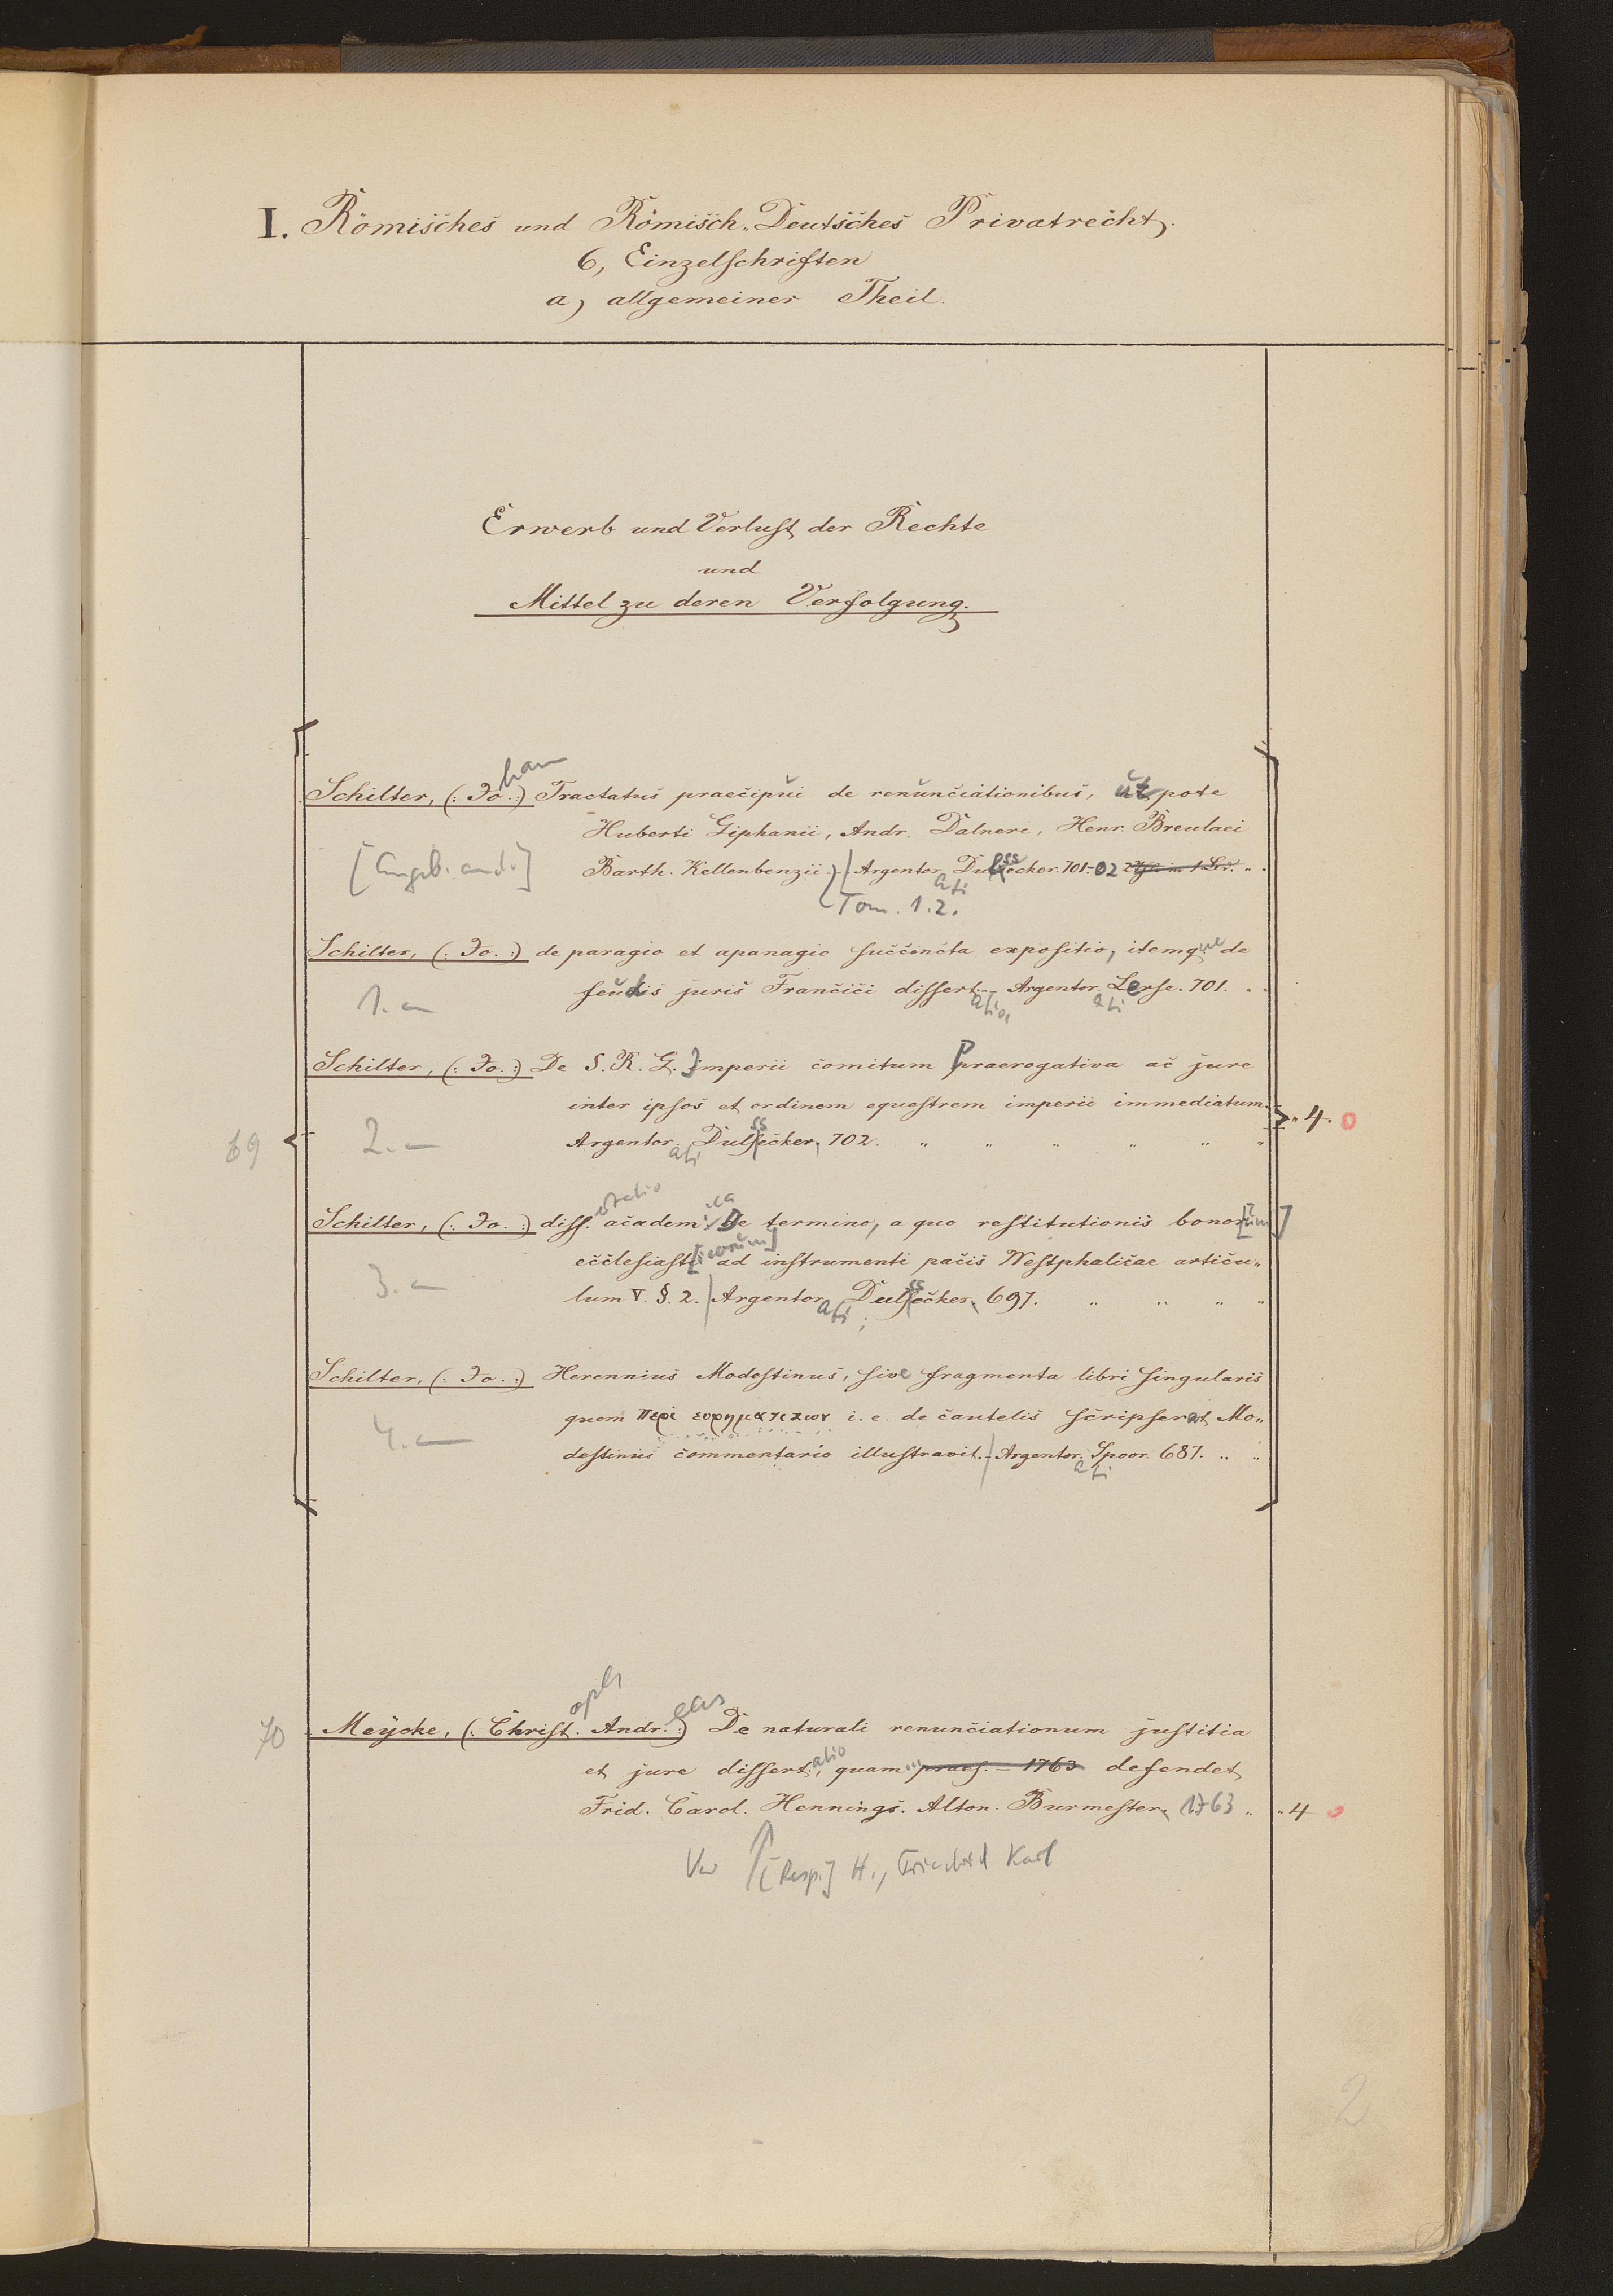 I. Römisches und Römisch-Deutsches Privatrecht.
6, Einzelschriften
a, allgemeiner Theil.
Erwerb und Verlust der Rechte
und
Mittel zu deren Verfolgung.
han
Schilter, (: Jo :) Tractatus praecipui de renunciationibus, ut pote
Huberti Giphanii, Andr. Dalneri, Henr. Breulaei
[Angeb. and.] Barth. Kellenbenzii. Argentor. Dulssecker. 701-02
ati
Tom. 1.2.
Schilter, (: Jo. :) de paragio et apanagio succincta expositio, itemque de
1. — feudis juris Francici dissert. Argentor. Lerse. 701.
atio, ati
Schilter, (: Jo. :) De S. R. G. Imperii comitum praerogativa ac jure
inter ipsos et ordinem equestrem imperii immediatum.
69 2. — Argentor. Dulssecker, 702. " " " " " " " 4. 0
ati
Schilter, (: Jo. :) diss. academica De termino, a quo restitutionis bonor[um]
ecclesiast[icorum] ad instrumenti pacis Westphalicae articu„
3. — lum V. §. 2. Argentor. Dulssecker, 697. " " " "
ati
Schilter, (: Jo. :) Herennius Modestinus, sive fragmenta libri singularis
quem περι ευρηματικων i. e. de cautelis scripserat Mo„
4. — destinus commentario illustravit. Argentor. Spoor. 687. " "
ati
oph eas
70 Meycke, (: Christ. Andr. :) De naturali renunciationum justitia
et jure dissert.atio, quam praes. – 1763 defendet
Frid. Carol. Hennings. Alton. Burmester. 1763 " " 4 0
Vw [Resp.] H., Friedrich Karl
2